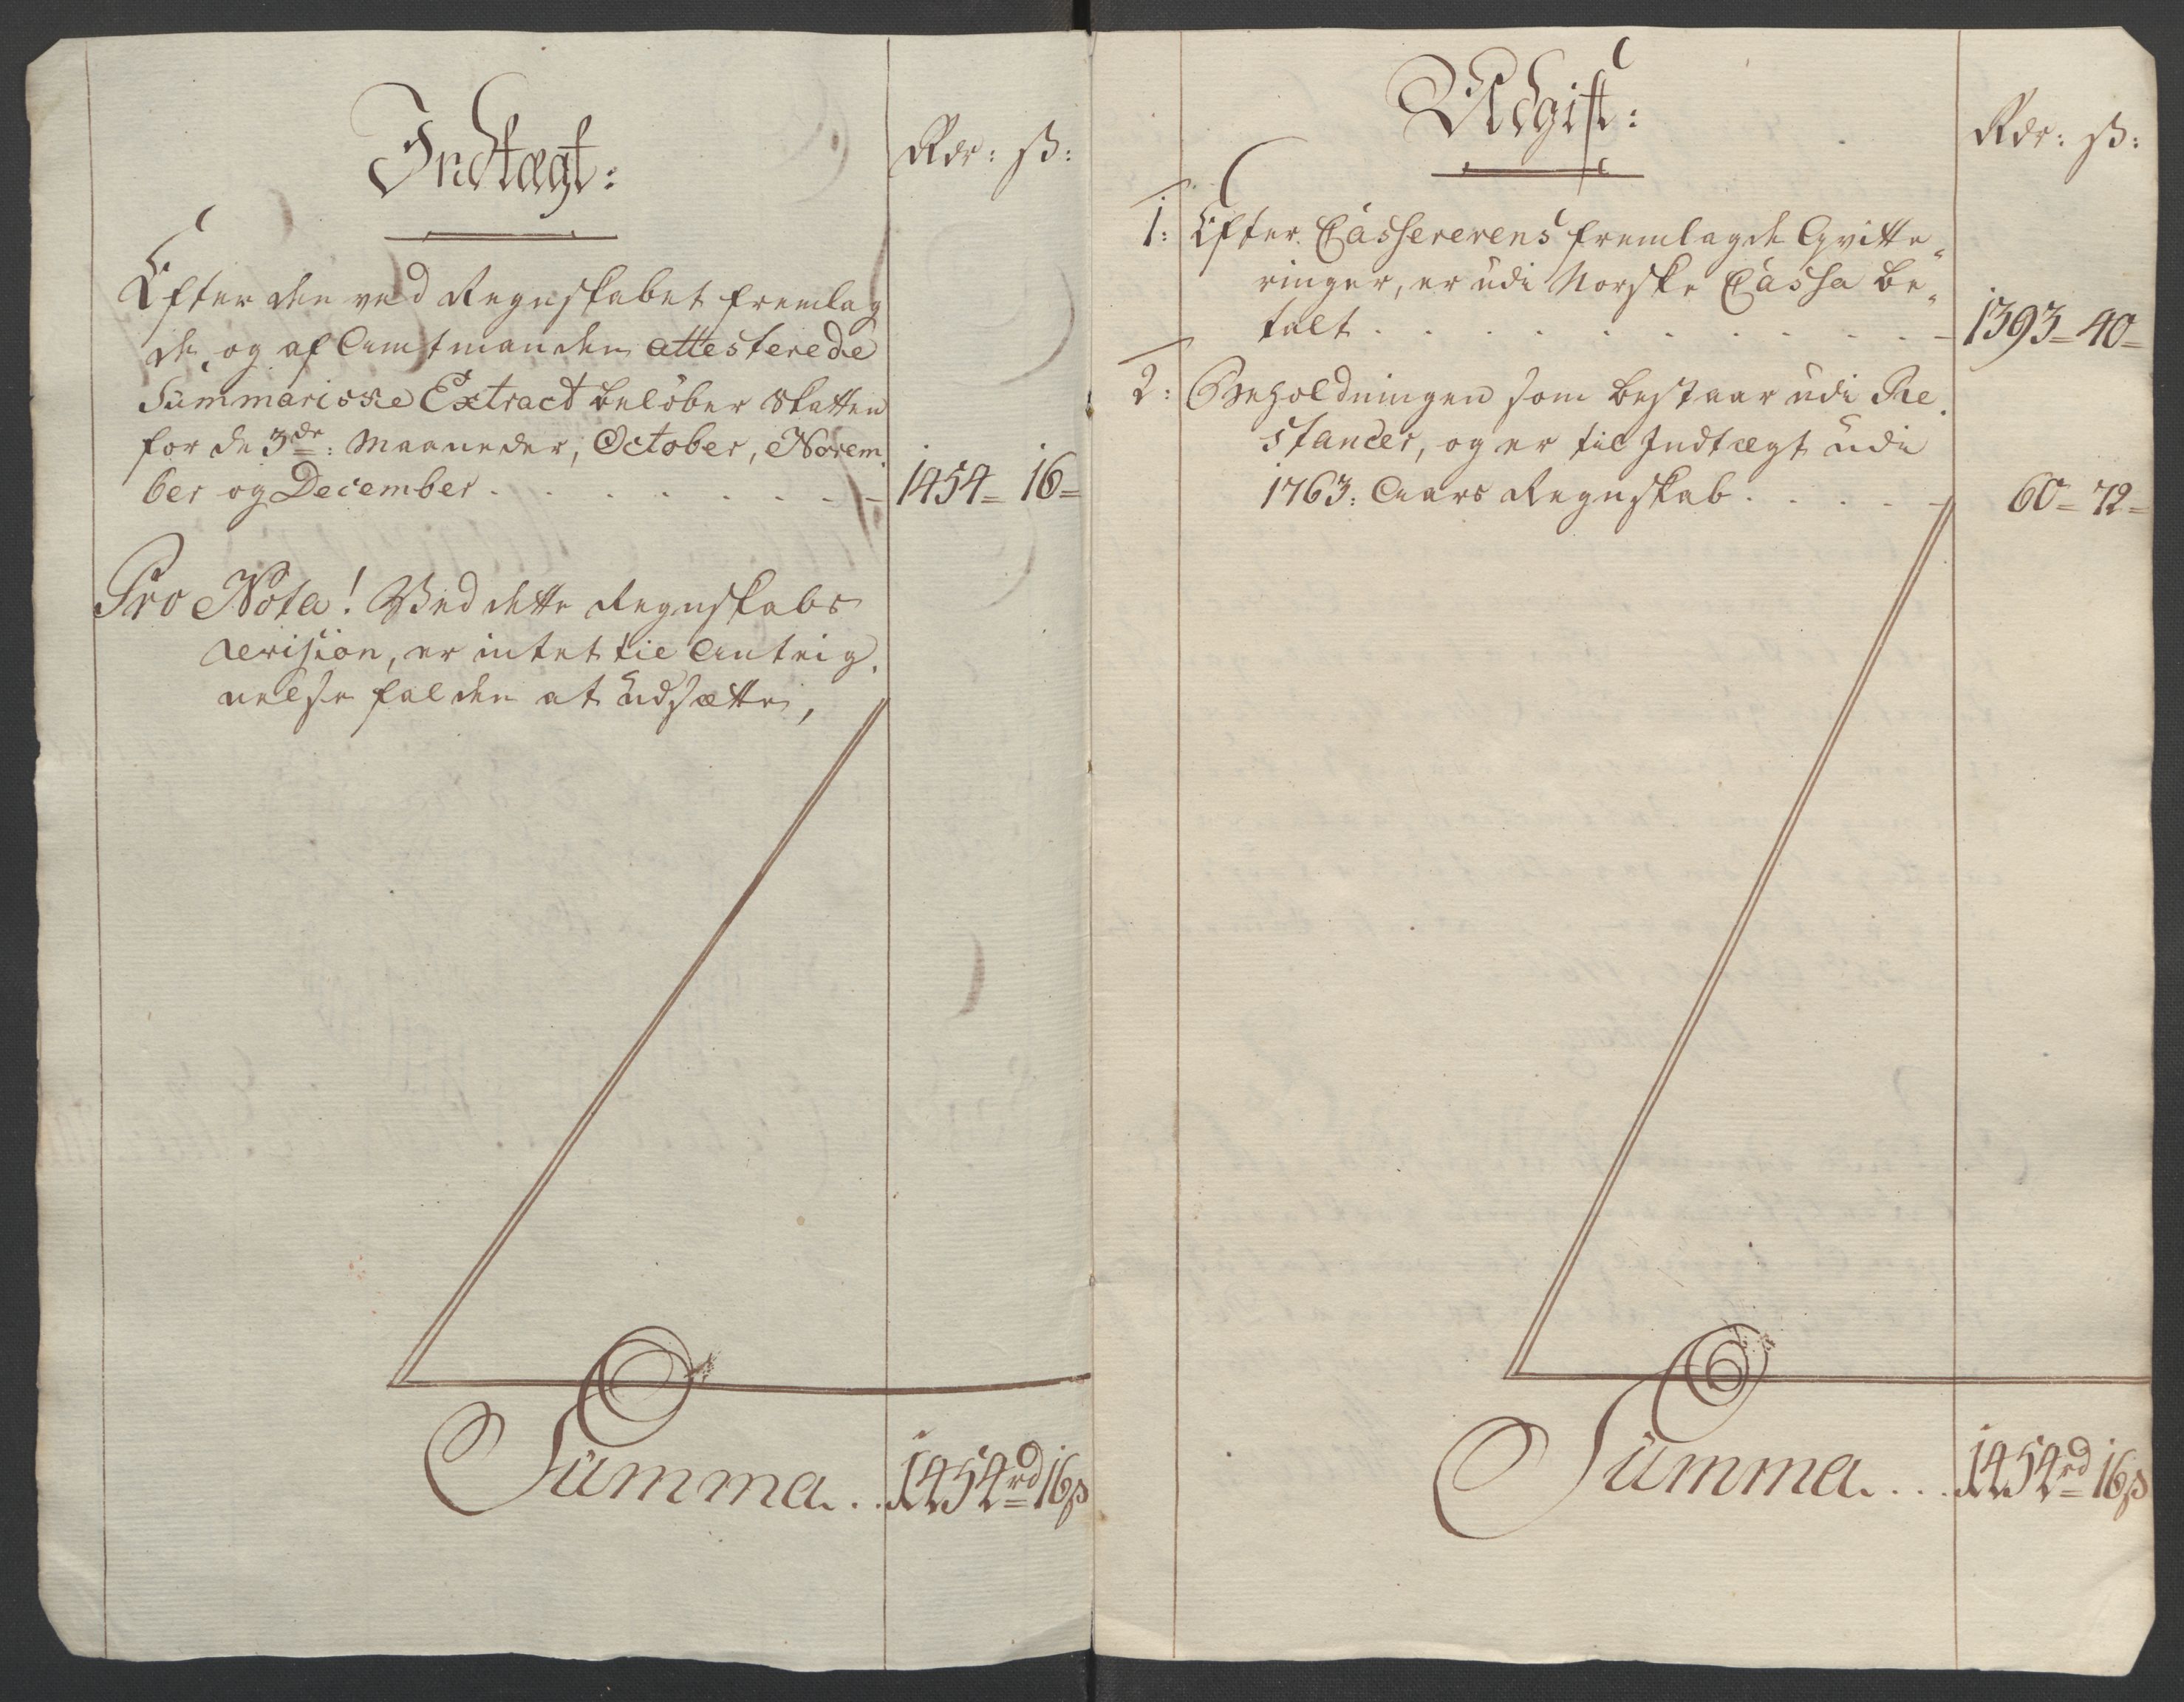 Indtægt:
Rdr: ß:
Efter den ved Regnskabet fremlag
de, og af Amtmanden attesterede
Summariske Extract beløber Skatten
for de 3de: Maaneder, October, Novem.
ber og December . . . . . . . . – 1454= 16=
Pro Nota! Ved dette Regnskabs
Revision, er intet til Anteig.
nelse falden at udsætte,
Summa . . 1454rd 16ß
Udgift:
Rdr: ß:
1: Efter Cassererens fremlagde Qvitte„
ringer, er udi Norske Cassa be„
talt . . . . . . . . . . – 1393= 40=
2: Beholdningen som bestaar udi Re.
stancer, og er til Indtægt udi
1763: Aars Regnskab . . . . – 60= 72=
Summa . . . 1454rd 16ß